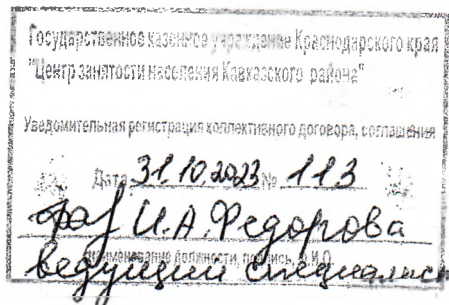 Государственное казенное учреждение Краснодарского края
"Центр занятости населения Кавказского района"
Уведомительная регистрация коллективного договора, соглашения
Дата 31.10.2023 № 113
И.А. Федорова
наименование должности, подпись, Ф.И.О.
ведущий специалист